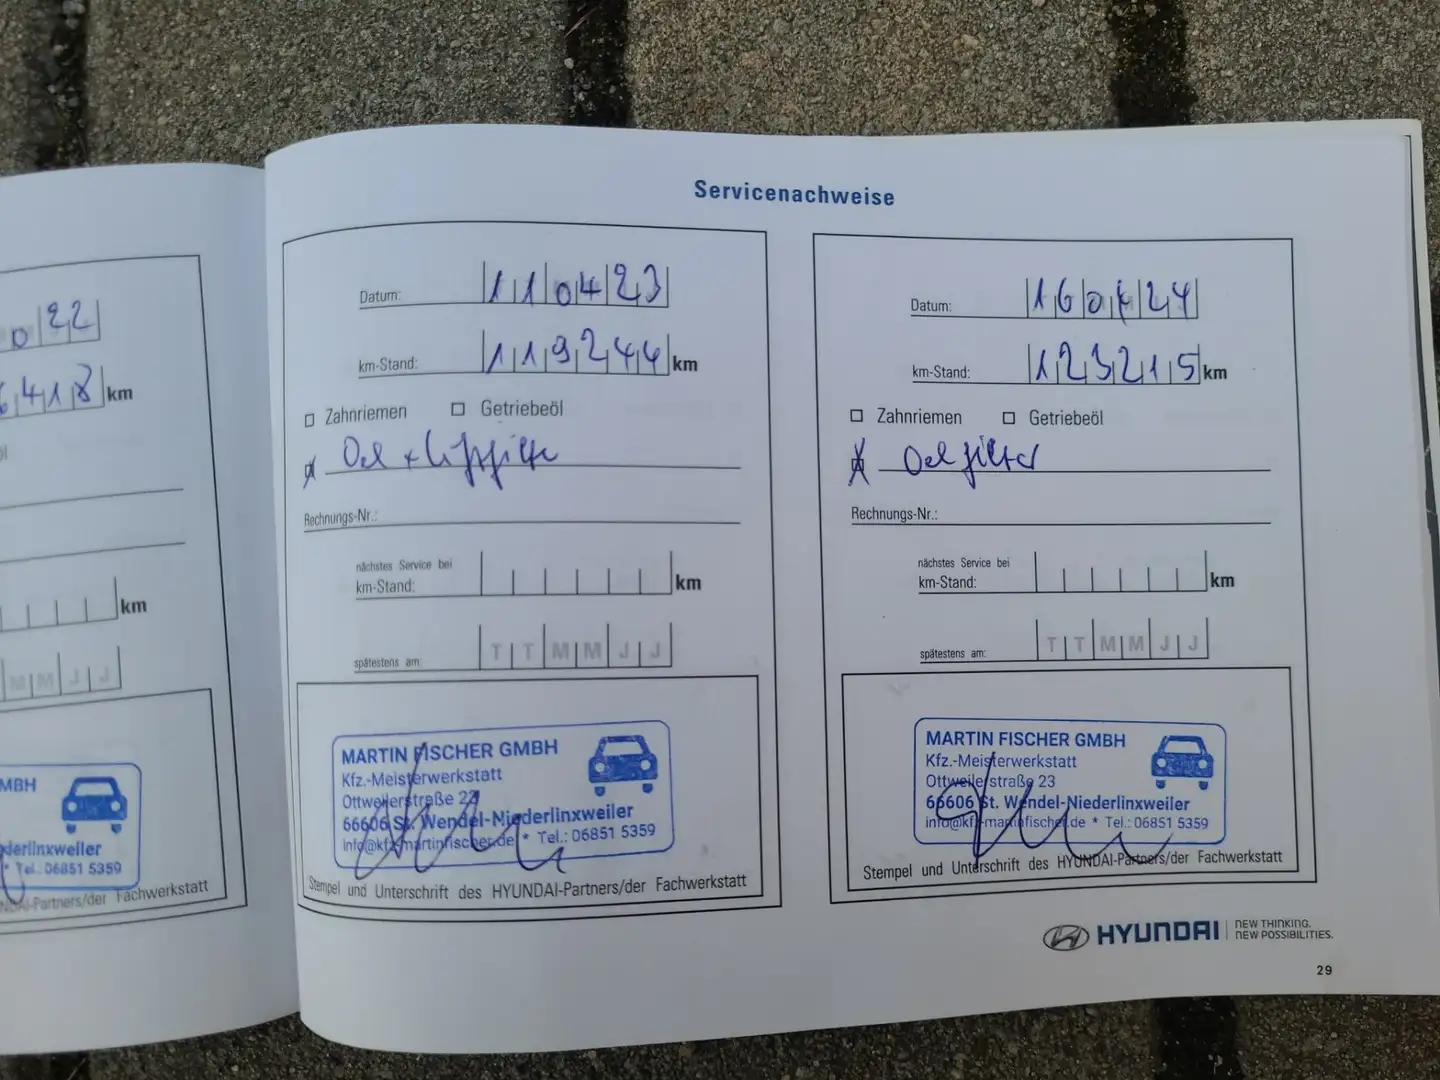 0 22
6418 km
km
M M J J
MBH
derlinxweiler
* Tel.: 06851 5359
NDAI-Partners/der Fachwerkstatt
Servicenachweise
Datum: 110423
km-Stand: 119244 km
Zahnriemen Getriebeöl
Oel + Luftfilter
Rechnungs-Nr.:
nächstes Service bei
km-Stand: km
spätestens am: T T M M J J
MARTIN FISCHER GMBH
Kfz.-Meisterwerkstatt
Ottweilerstraße 23
66606 St. Wendel-Niederlinxweiler
info@kfz-martinfischer.de * Tel.: 06851 5359
Stempel und Unterschrift des HYUNDAI-Partners/der Fachwerkstatt
Datum: 160424
km-Stand: 123215 km
Zahnriemen Getriebeöl
Oelfilter
Rechnungs-Nr.:
nächstes Service bei
km-Stand: km
spätestens am: T T M M J J
MARTIN FISCHER GMBH
Kfz.-Meisterwerkstatt
Ottweilerstraße 23
66606 St. Wendel-Niederlinxweiler
info@kfz-martinfischer.de * Tel.: 06851 5359
Stempel und Unterschrift des HYUNDAI-Partners/der Fachwerkstatt
HYUNDAI
NEW THINKING.
NEW POSSIBILITIES.
29